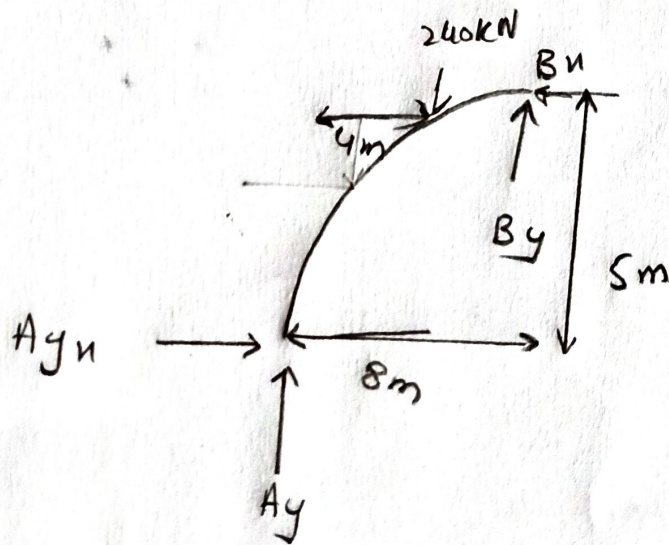 240kN
Bx
4m
By
5m
Ayx
8m
Ay